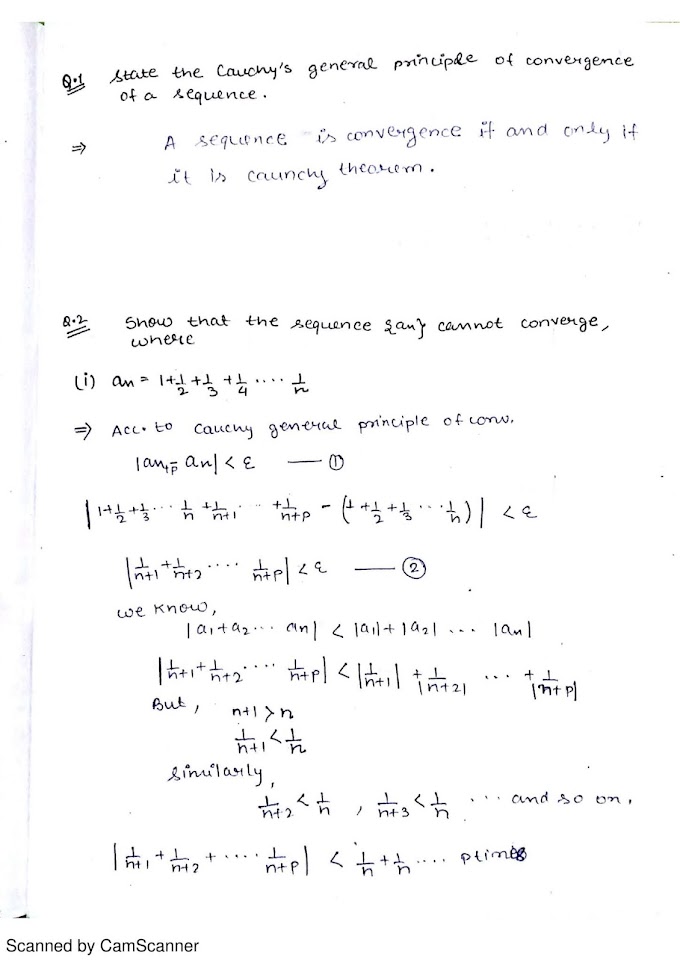 Q.1 State the Cauchy's general principle of convergence
of a sequence.
⇒ A sequence is convergence if and only if
it is caunchy theorem.
Q.2 Show that the sequence {an} cannot converge,
where
(i) an = 1+1/2+1/3+1/4 .... 1/n
⇒ Acc. to Cauchy general principle of conv.
|an+p - an| < ε — ①
|1+1/2+1/3... 1/n +1/n+1 ... +1/n+p - (1+1/2+1/3...1/n)| < ε
|1/n+1 + 1/n+2 .... 1/n+p| < ε — ②
we know,
|a1+a2... an| < |a1|+|a2| ... |an|
|1/n+1 + 1/n+2 .... 1/n+p| < |1/n+1| + 1/|n+2| ... + 1/|n+p|
But, n+1 > n
1/n+1 < 1/n
Similarly,
1/n+2 < 1/n , 1/n+3 < 1/n ... and so on,
|1/n+1 + 1/n+2 + .... 1/n+p| < 1/n + 1/n .... p times
Scanned by CamScanner